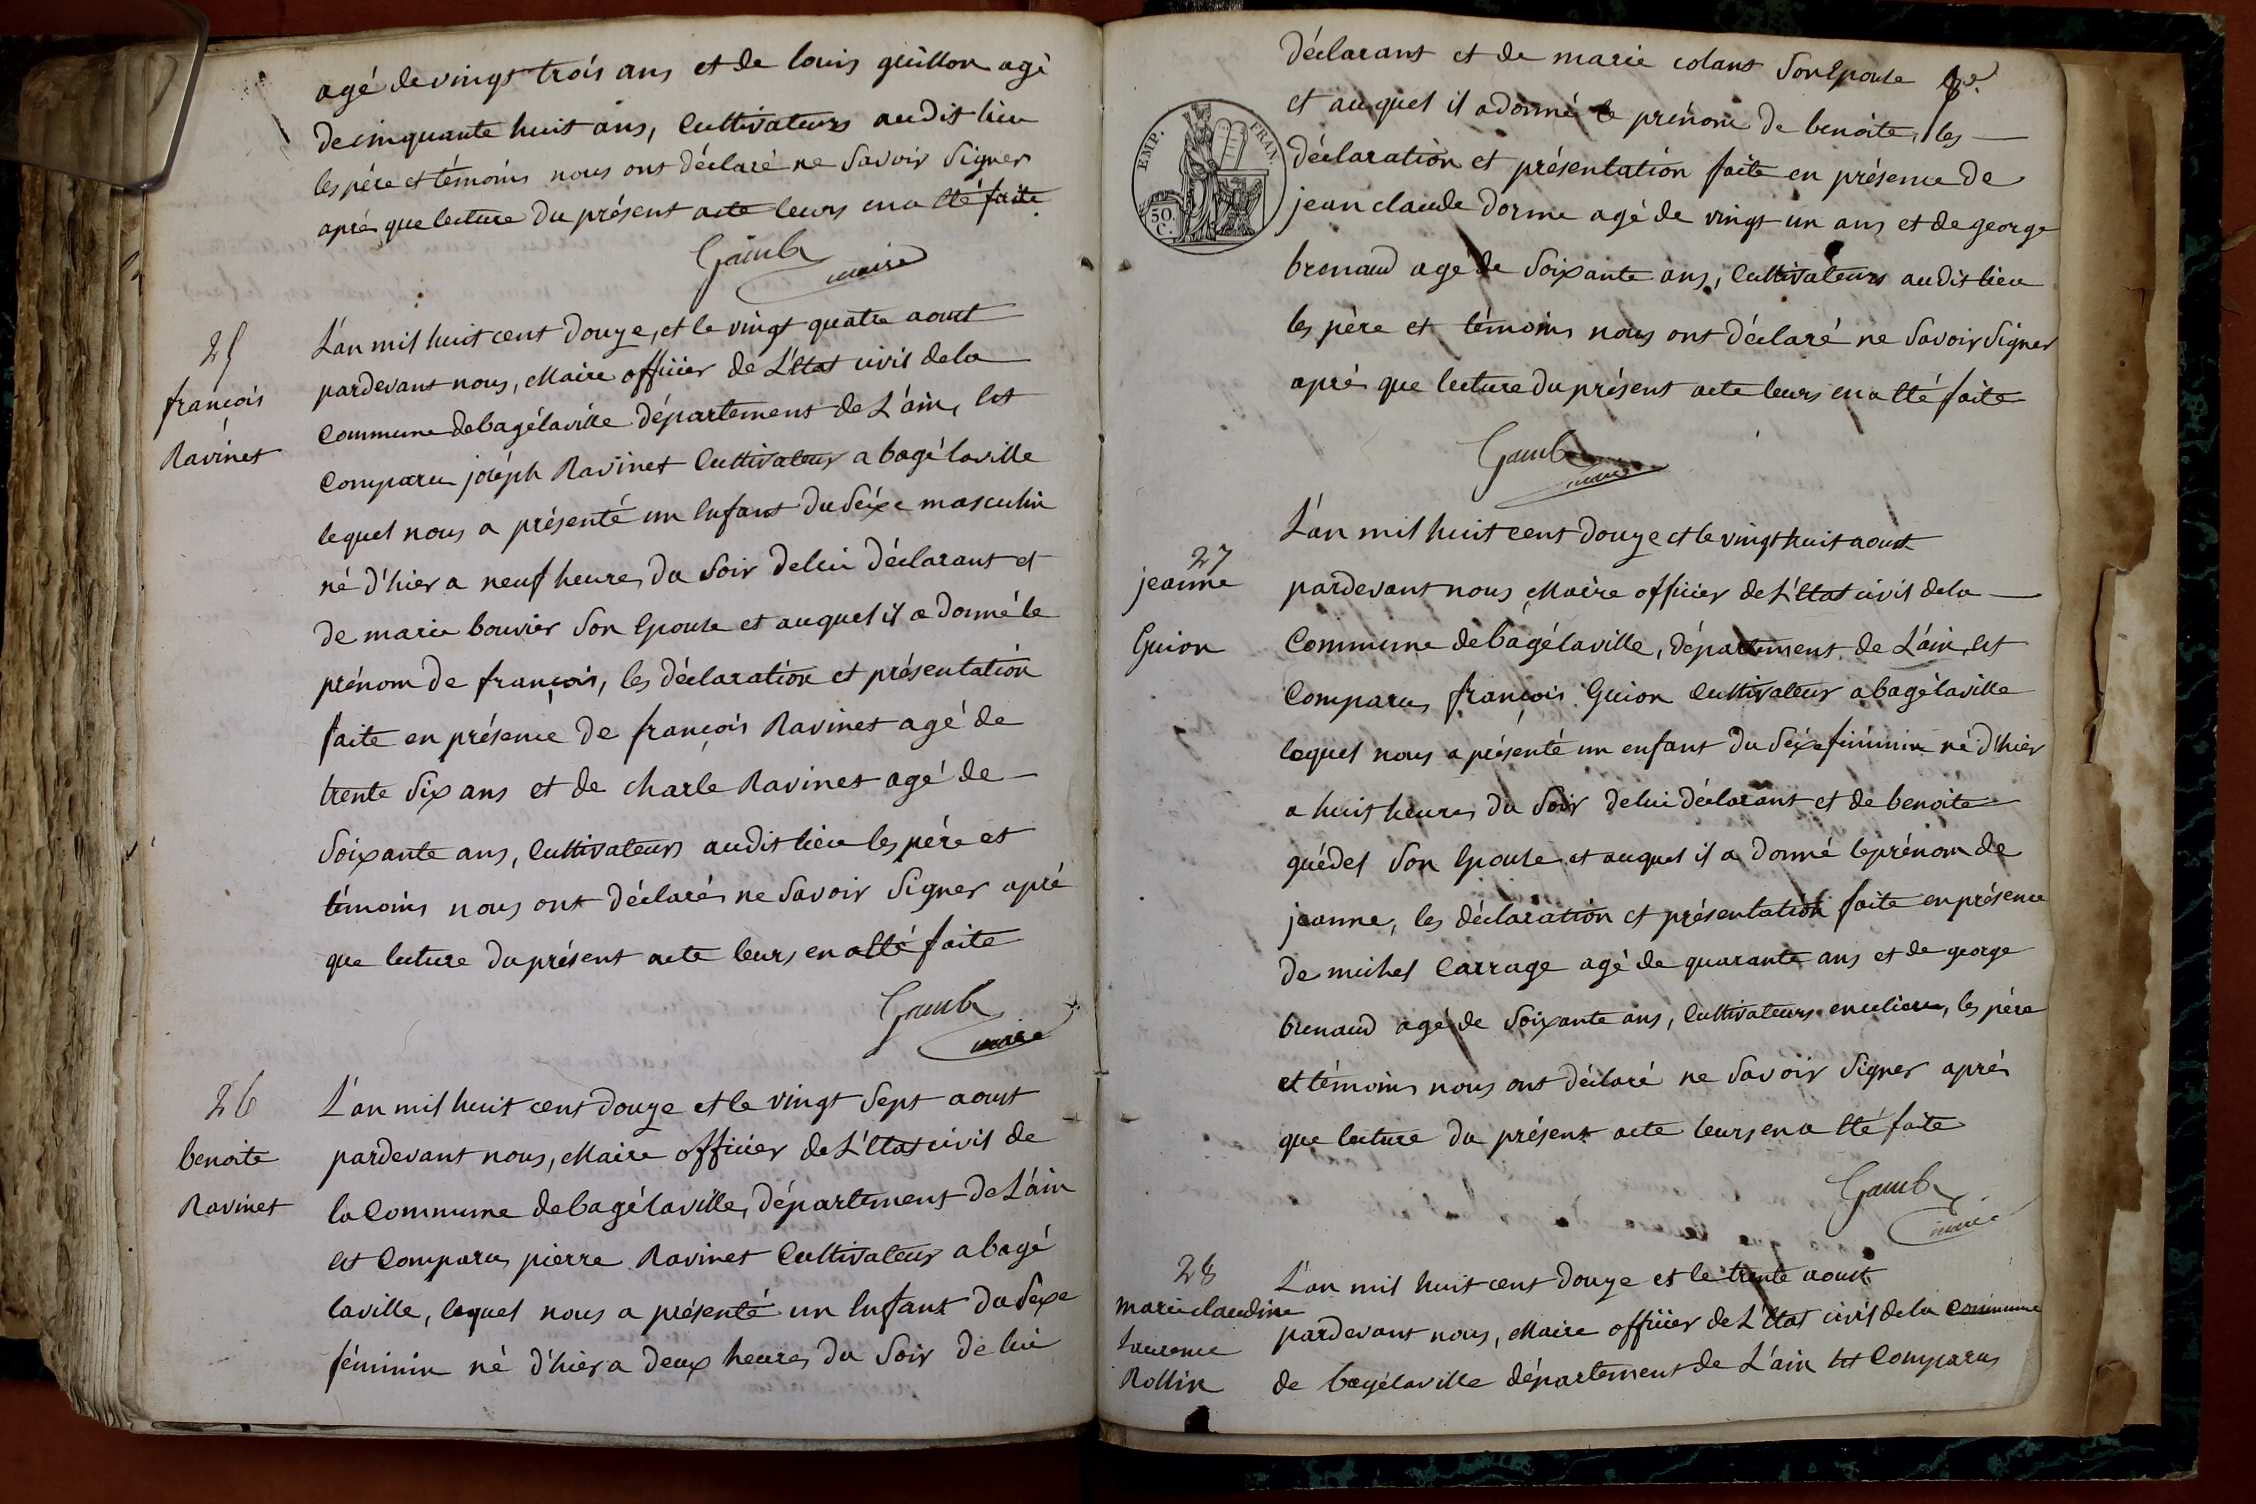 agé de vingt trois ans et de louis guillon agé
de cinquante huit ans, Cultivateurs audit lieu
les père et témoins nous ont déclaré ne Savoir Signer
aprés que lecture du présent acte leurs en a Eté faite
maire
25
françois
Ravinet
L'an mil huit cent douze, et le vingt quatre aout
pardevant nous, Maire officier de L'Etat civil de la
Commune de bagélaville département de L'ain, Est
Comparu joséph Ravinet Cultivateur a bagélaville
lequel nous a présenté un Enfant du Séxe masculin
né d'hier a neuf heures du Soir de lui déclarant et
de marie bouvier Son Epouse et auquel il a donné le
prénom de françois, les déclaration et présentation
faite en présence de françois Ravinet agé de
trente Six ans et de charle Ravinet agé de
Soixante ans, Cultivateurs audit lieu les père et
témoins nous ont déclarés ne Savoir Signer apré
que lecture du présent acte leurs en a Eté faite
maire
26
benoite
Ravinet
L'an mil huit cent douze et le vingt Sept aout
pardevant nous, Maire officier de L'Etat civil de
la Commune de bagélaville, département de L'ain
Est Comparu pierre Ravinet Cultivateur a bagé
laville, lequel nous a présenté un Enfant du Sexe
féminin né d'hier a deux heures du Soir de lui
déclarant et de marie colant Son Epouse
et auquel il a donné le prénom de benoite, les
déclaration et présentation faite en présence de
jean claude dorme agé de vingt un ans et de george
brenaud agé de Soixante ans, Cultivateurs audit lieu
les père et témoins nous ont déclaré ne Savoir Signer
aprés que lecture du présent acte leurs en a Eté faite
maire
EMP. FRAN.
50.
C.
27
jeanne
Guion
L'an mil huit cent douze et le vingt huit aout
pardevant nous Maire officier de L'Etat civil de la
Commune de bagélaville, département de L'ain, Est
Comparu, françois Guion Cultivateur a bagélaville
lequel nous a présenté un enfant du Séxe féminin né d'hier
a huit heures du Soir de lui déclarant et de benoite
guédel Son Epouse et auquel il a donné le prénom de
jeanne, les déclaration et présentation faite en présence
de michel Carrage agé de quarante ans et de george
brenaud agé de Soixante ans, Cultivateurs, les père
et témoins nous ont déclaré ne Savoir Signer aprés
que lecture du présent acte leurs en a Eté faite
maire
28
marie claudine
Laurence
Rollin
L'an mil huit cent douze et le trente aout
pardevant nous, Maire officier de L'Etat civil de la Commune
de bagélaville département de L'ain Est Comparus